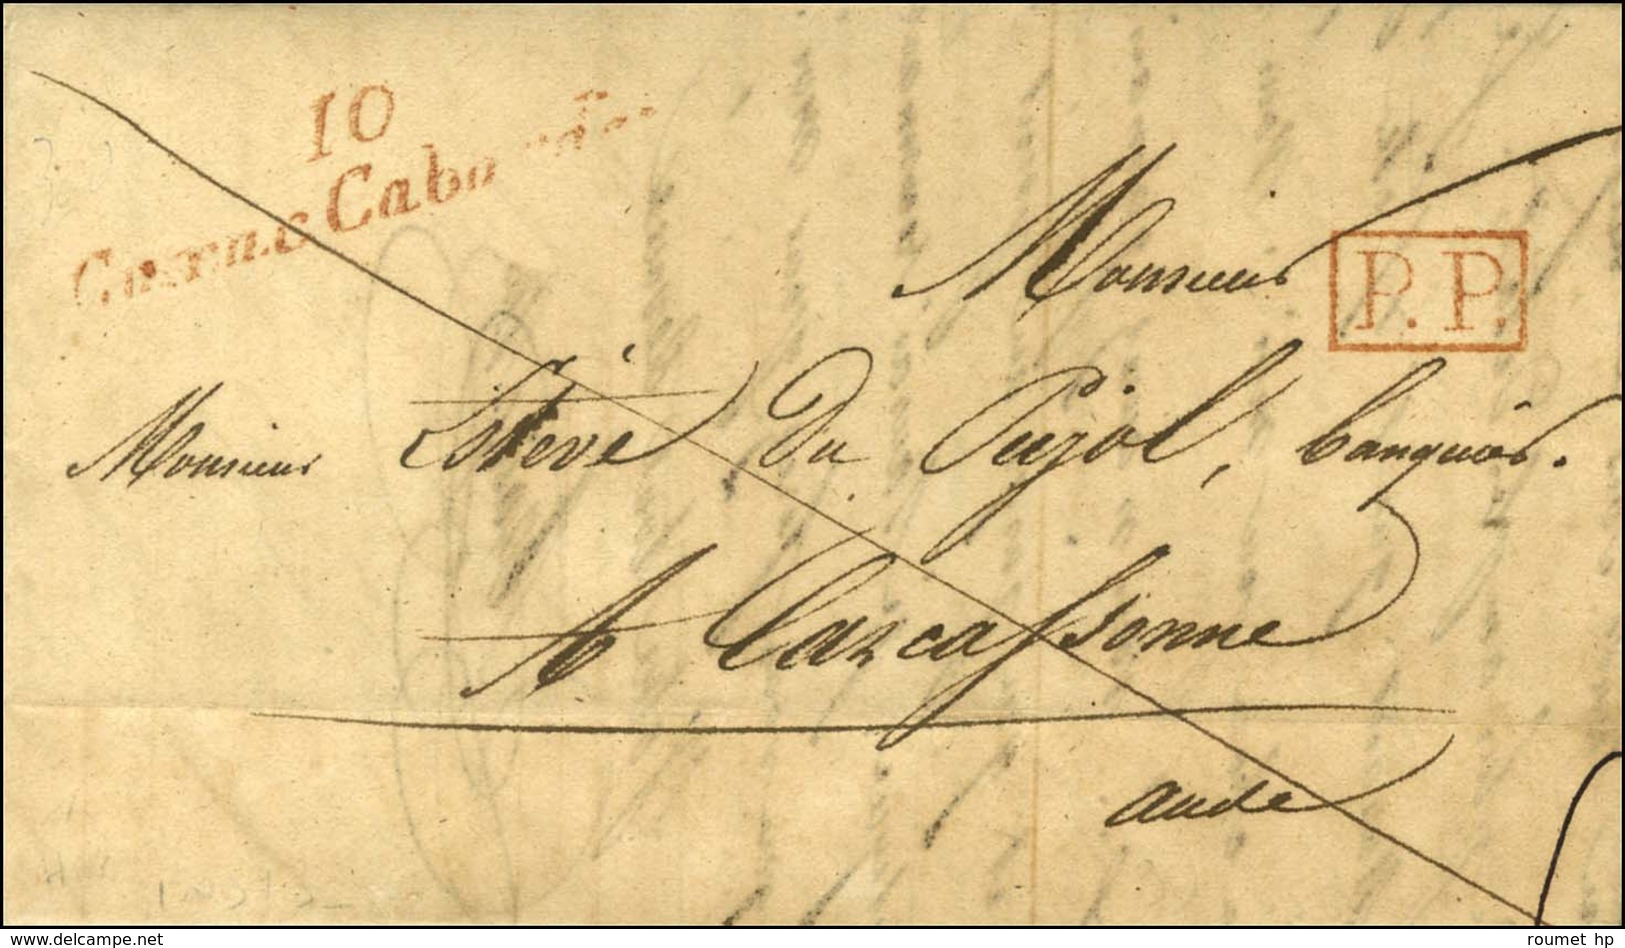 10
Cuxac Cabardes
Monsieur
P.P.
Monsieur Estève du Pujol, banquier.
A Carcassonne
aude
www.delcampe.net
roumet hp